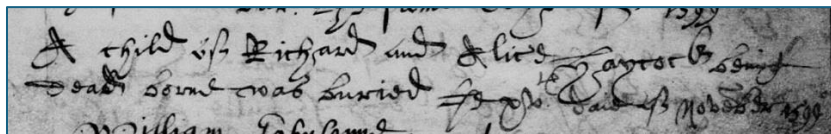 1599
A child of Richard and Alice Haycock being
Dead borne was buried the xvth daie of November 1599
William